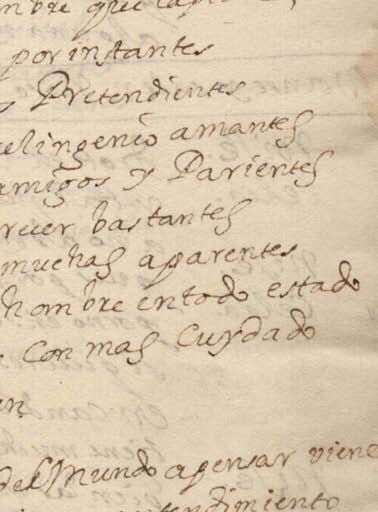 mbre que
por instantes
s Pretendientes
el ingenio amantes
amigos y Parientes
recer bastantes
muchas aparentes
hombre en todo estado
con mas Cuydado
en
del Mundo a pensar viene
tendimiento